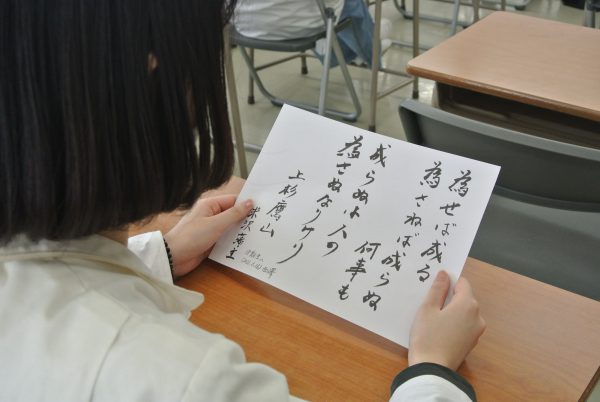 為せば成る
為さねば成らぬ
何事も
成らぬは人の
為さぬなりけり
上杉鷹山
米沢藩主